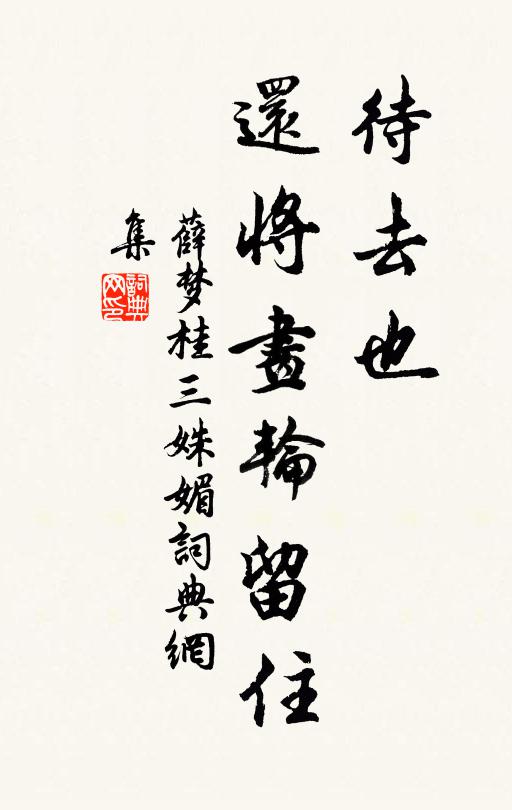 待去也
還將畫輪留住
薛梦桂三姝媚詞典網
集
詞典网印